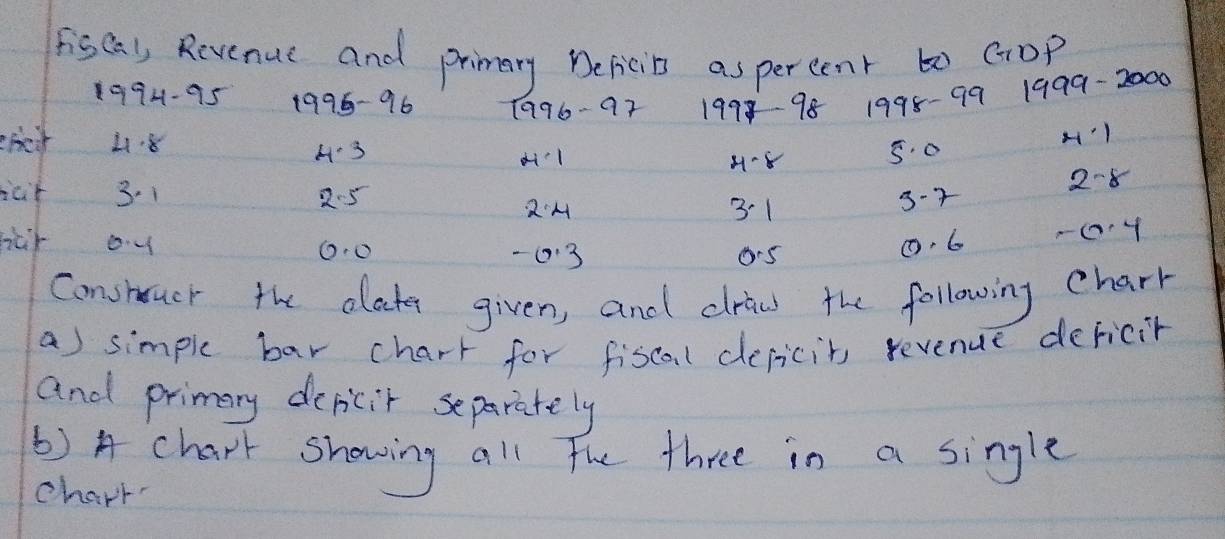 Fiscal, Revenue and primary Deficits as per cent to GDP
1994-95 1995-96 1996-97 1997-98 1998-99 1999-2000
eficit 4.8 4.3 4.1 4.8 5.0 4.1
icit 3.1 2.5 2.4 3.1 3.7 2.8
ficit 0.4 0.0 -0.3 0.5 0.6 -0.4
Construct the data given, and draw the following Chart
a) simple bar chart for fiscal deficit, revenue deficit
and primary deficit separately
b) A chart showing all The three in a single
chart.